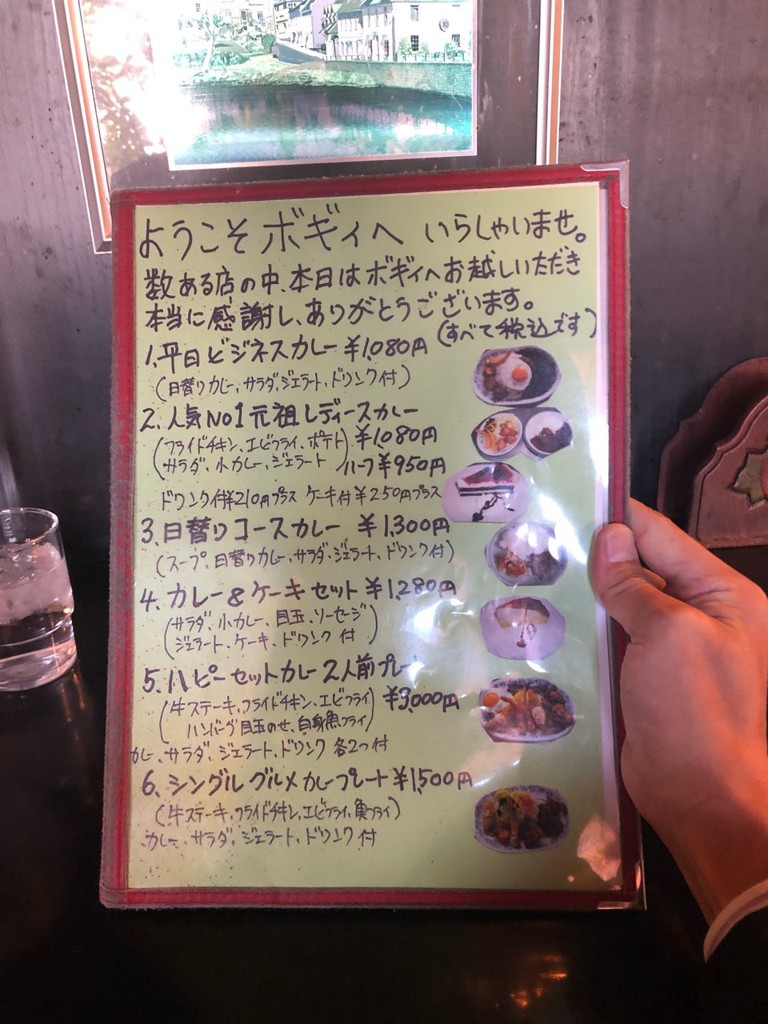 ようこそ ボギィへ いらしゃいませ。
数ある店の中、本日はボギィへお越しいただき
本当に感謝し、ありがとうございます。
(すべて税込です)
1. 平日ビジネスカレー ¥1,080円
(日替りカレー、サラダ、ジェラート、ドリンク付)
2. 人気No1元祖レディースカレー
(フライドチキン、エビフライ、ポテト ¥1,080円
サラダ、小カレー、ジェラート) ハーフ¥950円
ドリンク付¥210円プラス ケーキ付¥250円プラス
3. 日替りコースカレー ¥1,300円
(スープ、日替りカレー、サラダ、ジェラート、ドリンク付)
4. カレー&ケーキセット ¥1,280円
(サラダ、小カレー、目玉、ソーセージ
ジェラート、ケーキ、ドリンク付)
5. ハピーセットカレー2人前プレート
(牛ステーキ、フライドチキン、エビフライ ¥3,000円
ハンバーグ目玉のせ、白身魚フライ)
カレー、サラダ、ジェラート、ドリンク 各2つ付
6. シングルグルメカレープレート ¥1,500円
(牛ステーキ、フライドチキン、エビフライ、魚フライ)
カレー、サラダ、ジェラート、ドリンク付